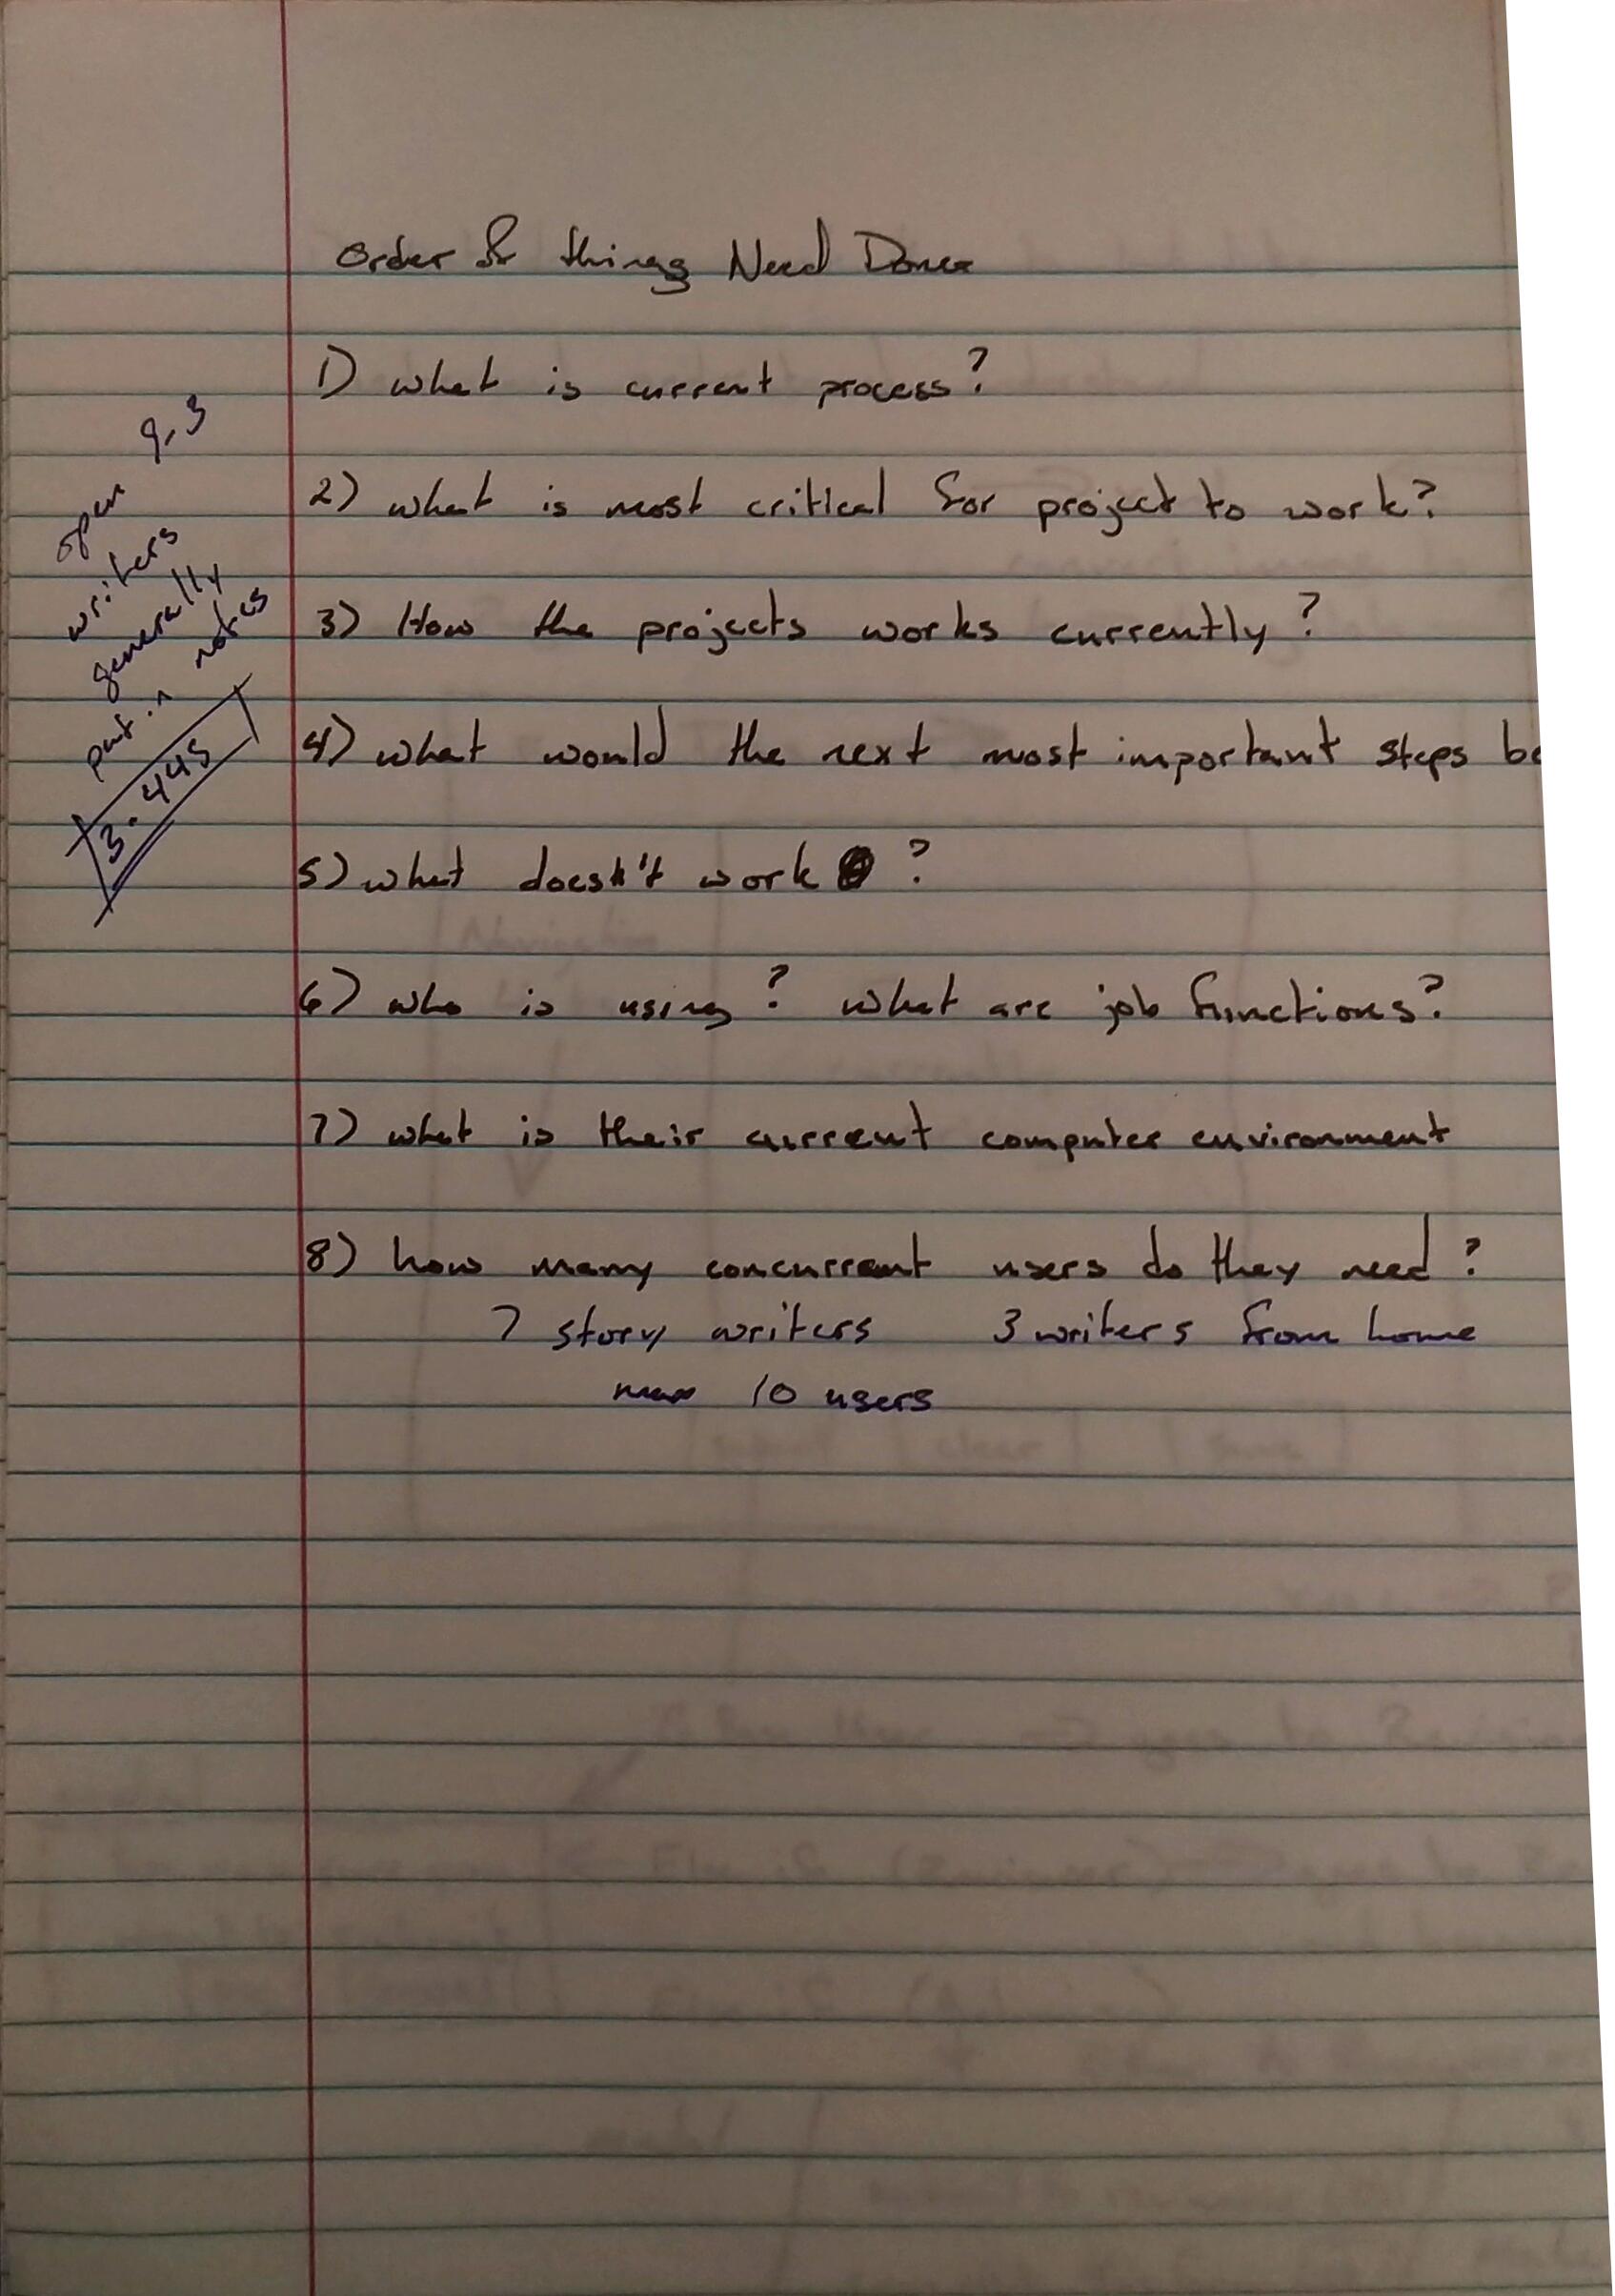 Order of things Need Done
1) what is current process?
2) what is most critical for project to work?
3) How the projects works currently?
4) what would the next most important steps be
5) what doesn't work ?
6) who is using? what are job functions?
7) what is their current computer environment
8) how many concurrent users do they need?
7 story writers 3 writers from home
max 10 users
open 9.3
writers
generally
put in notes
3.445